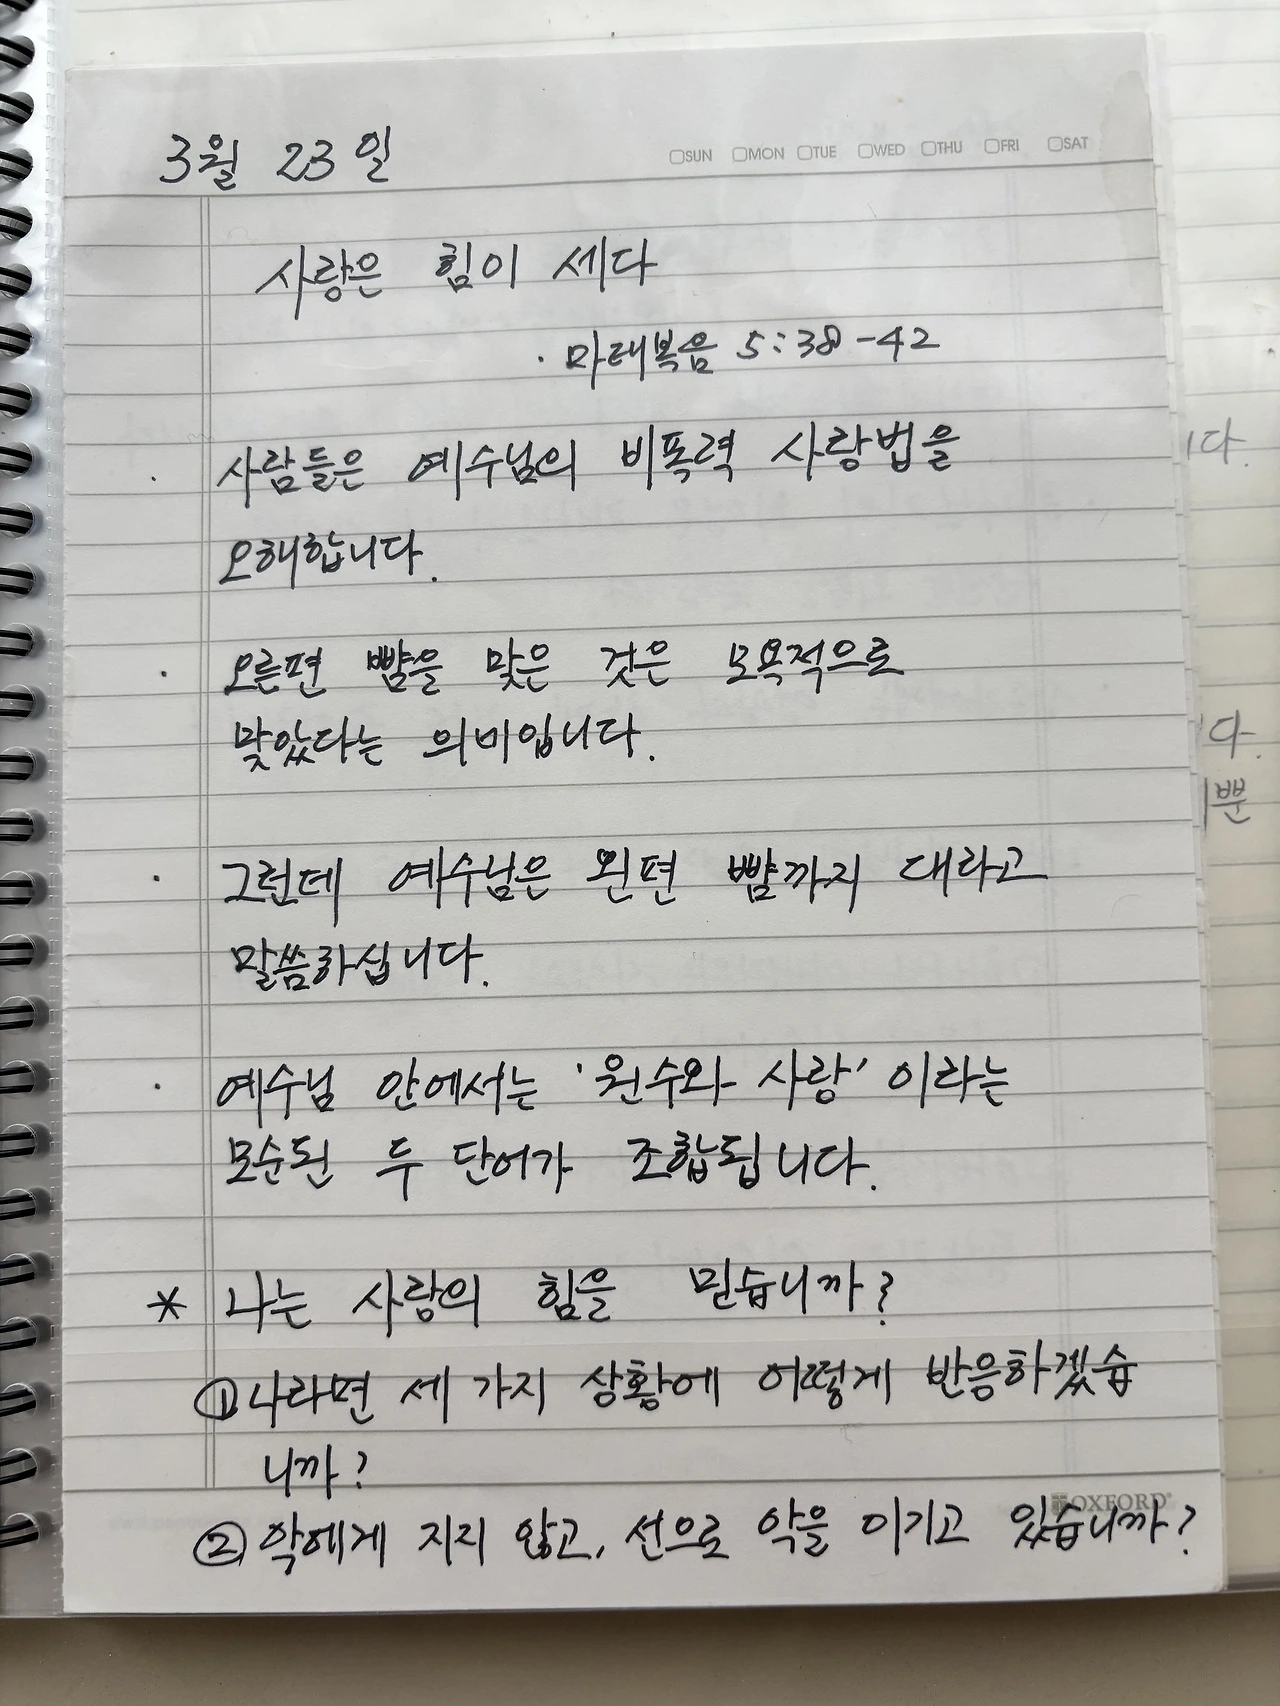 3월 23일
SUN MON TUE WED THU FRI SAT
사랑은 힘이 세다
· 마태복음 5:38-42
· 사람들은 예수님의 비폭력 사랑법을
오해합니다.
· 오른편 뺨을 맞은 것은 모욕적으로
맞았다는 의미입니다.
· 그런데 예수님은 왼편 뺨까지 대라고
말씀하십니다.
· 예수님 안에서는 '원수와 사랑' 이라는
모순된 두 단어가 조합됩니다.
* 나는 사랑의 힘을 믿습니까?
① 나라면 세 가지 상황에 어떻게 반응하겠습
니까?
OXFORD
② 악에게 지지 않고, 선으로 악을 이기고 있습니까?
다.
다.
뿐